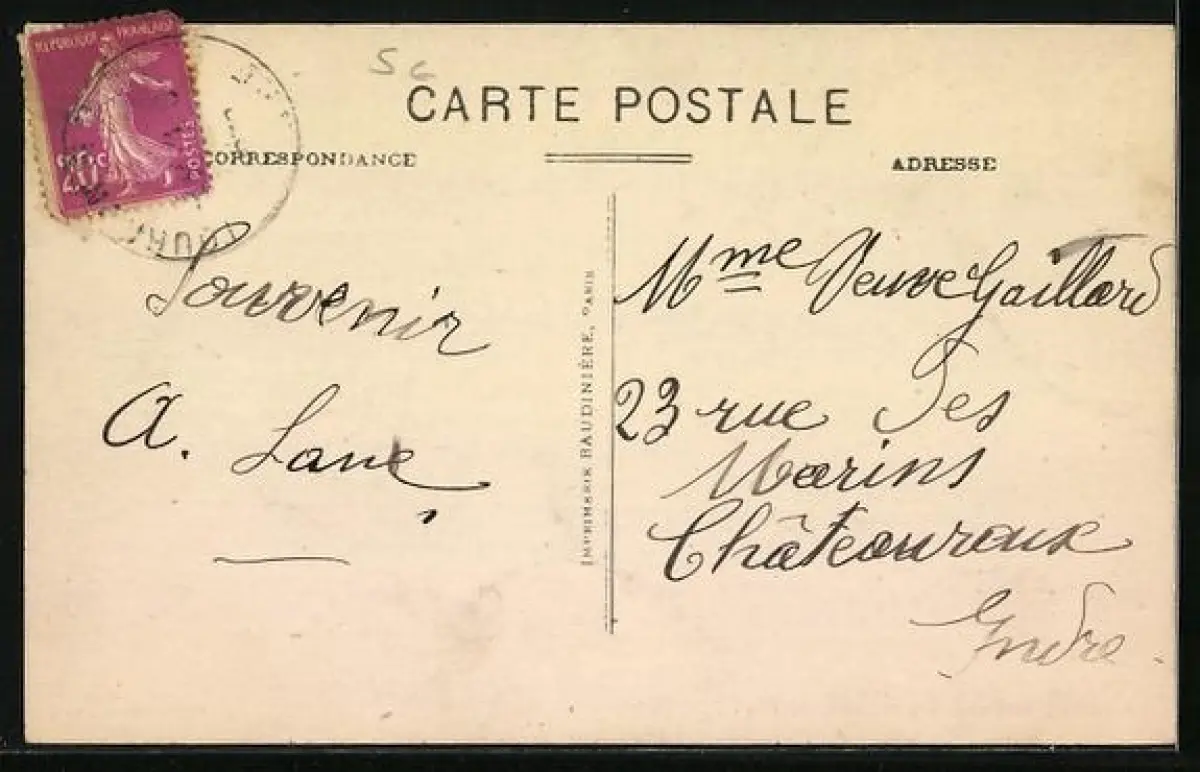 REPUBLIQUE FRANÇAISE
POSTES
5c
CARTE POSTALE
CORRESPONDANCE
ADRESSE
Souvenir
A.
IMPRIMERIE BAUDINIÈRE, PARIS
Mme Veuve Gaillard
23 rue Des
Marins
Châteauroux
Indre.